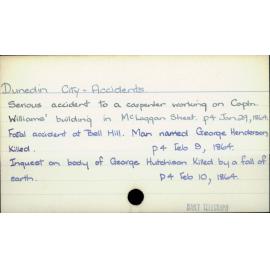 Dunedin City - Accidents
Serious accident to a carpenter working on Captn.
Williams' building in McLaggan Street. p4 Jan 29, 1864.
Fatal accident at Bell Hill. Man named George Henderson
killed. p4 Feb 9, 1864.
Inquest on body of George Hutchison killed by a fall of
earth. p4 Feb 10, 1864.